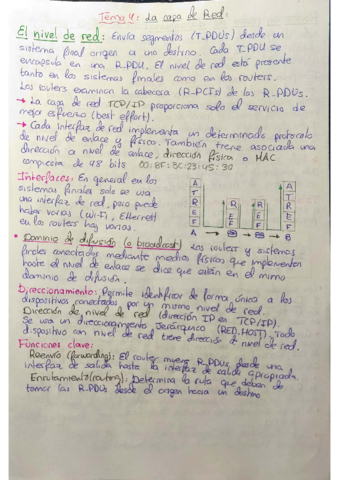 Tema 4: La capa de Red:
El nivel de red: Envía segmentos (T_PDUs) desde un
sistema final origen a uno destino. Cada T_PDU se
encapsula en una R_PDU. El nivel de red está presente
tanto en los sistemas finales como en los routers.
Los routers examinan la cabecera (R-PCIs) de las R_PDUs.
→ La capa de red TCP/IP proporciona solo el servicio de
mejor esfuerzo (best effort).
→ Cada interfaz de red implementa un determinado protocolo
de nivel de enlace y físico. También tiene asociada una
dirección a nivel de enlace, dirección física o MAC
compuesta de 48 bits
Interfaces: En general en los
sistemas finales solo se usa
una interfaz de red, pero puede
haber varias (Wi-Fi, Ethernet)
en los routers hay varias.
A T R E F
R E F
R E F
A T R E F
A B
* Dominio de difusión (o broadcast) Los routers y sistemas
finales conectados mediante medios físicos que implementen
hasta el nivel de enlace se dice que están en el mismo
dominio de difusión.
Direccionamiento: Permite identificar de forma única a los
dispositivos conectados por un mismo nivel de red.
Dirección de nivel de red (dirección IP en TCP/IP).
Se usa un direccionamiento jerárquico (RED.HOST). Todo
dispositivo con nivel de red tiene dirección de nivel de red.
Funciones clave:
Reenvío (forwarding): El router mueve R_PDUs desde una
interfaz de salida hasta la interfaz de salida apropiada
Enrutamiento (routing): Determina la ruta que deban de
tomar las R_PDUs desde el origen hacia un destino